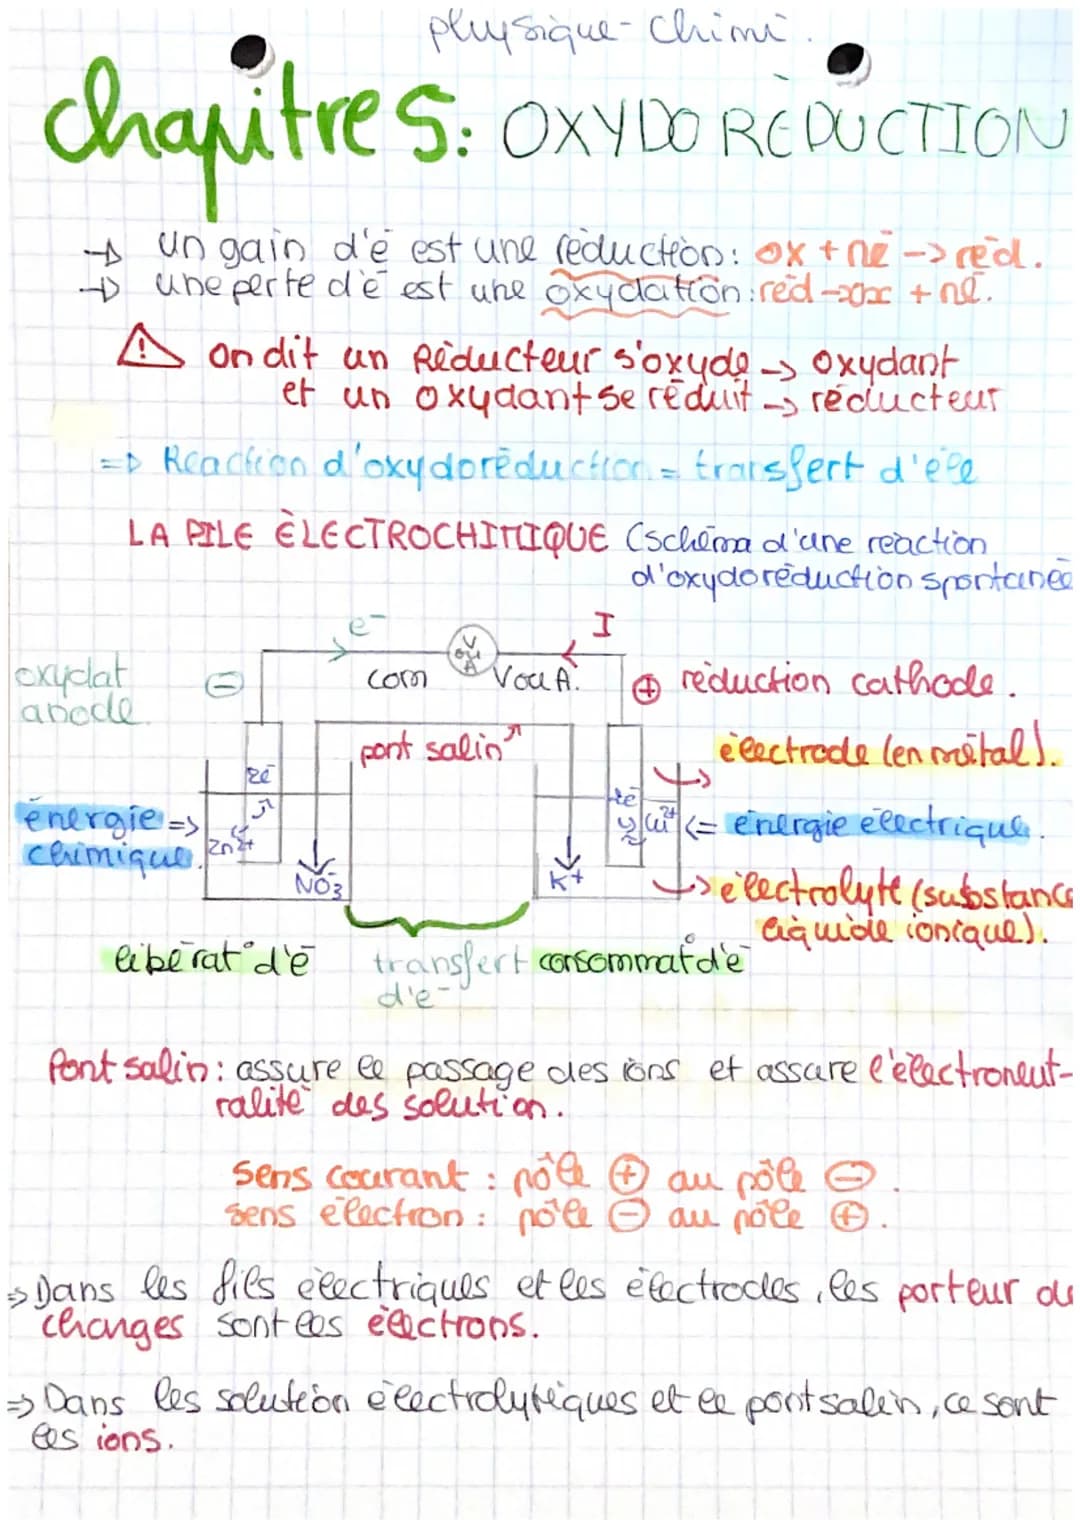 physique-Chimi.
chapitre 5: OXYDO RÉDUCTION
→ un gain d'é est une réduction: ox + né -> réd.
→ une perte d'é est une oxydation: réd -> ox + né.
⚠ on dit un Réducteur s'oxyde -> Oxydant
et un oxydant se réduit -> réducteur
=> Reaction d'oxydoréduction = transfert d'éle
LA PILE ÉLECTROCHIMIQUE (schéma d'une réaction
d'oxydoréduction spontanée
e-
I
V
ou
A
com
V ou A.
oxydat
anode
⊖
⊕ réduction cathode.
pont salin
électrode (en métal).
2é
2é
énergie =>
chimique
Zn2+
Cu2+
<= énergie électrique.
NO3-
K+
-> électrolyte (substance
liquide ionique).
libérat° d'é
transfert
d'e-
consommat° d'é
Pont salin: assure le passage des ions et assure l'électroneut-
ralité des solution.
sens courant : pôle ⊕ au pôle ⊖.
sens électron : pôle ⊖ au pôle ⊕.
=> Dans les fils électriques et les électrodes, les porteur de
changes sont les électrons.
=> Dans les solution électrolytiques et le pont salin, ce sont
les ions.